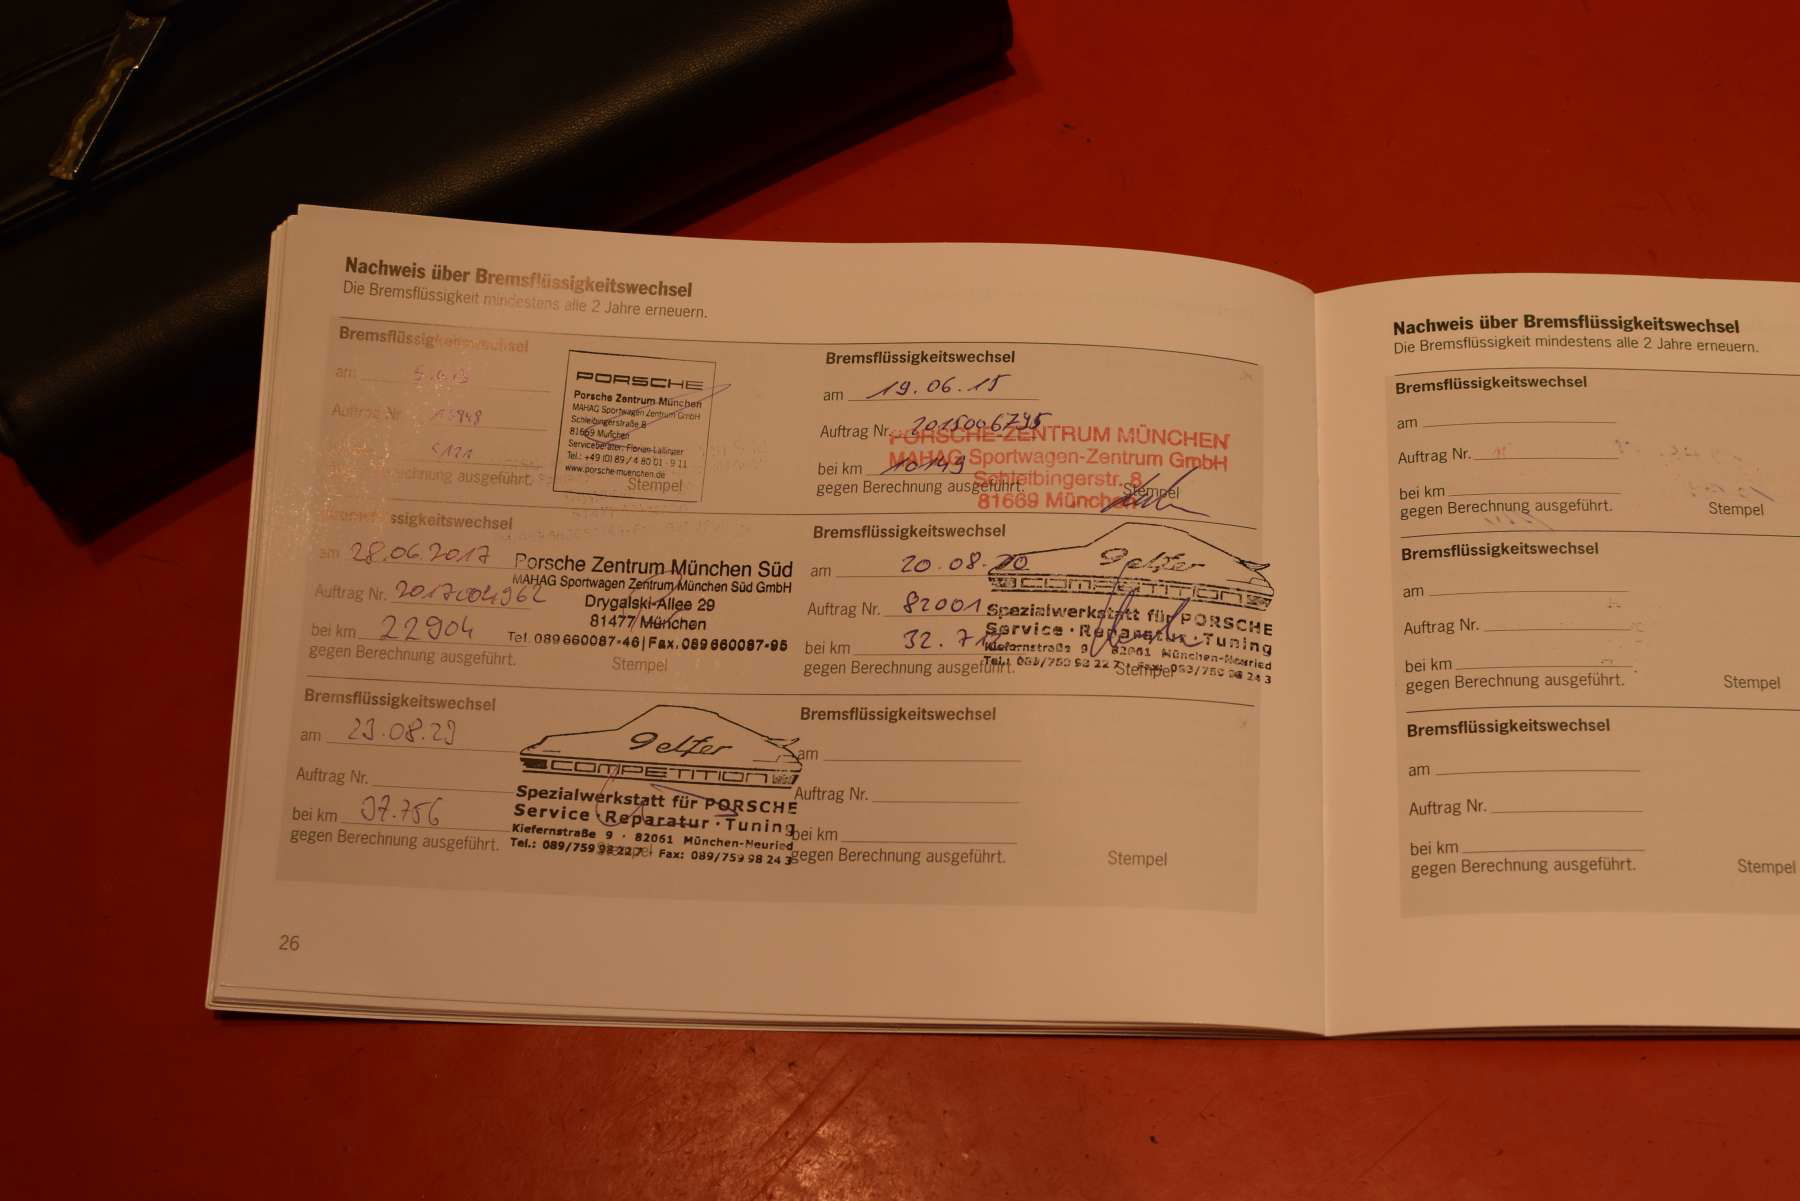 Nachweis über Bremsflüssigkeitswechsel
Die Bremsflüssigkeit mindestens alle 2 Jahre erneuern.
Bremsflüssigkeitswechsel
am
Auftrag Nr.
gegen Berechnung ausgeführt.
Stempel
PORSCHE
Porsche Zentrum München
MAHAG Sportwagen Zentrum GmbH
Schleibingerstraße 8
81669 München
Serviceberater: Florian Lallinger
Tel.: +49 (0) 89 / 4 80 01 - 9 11
www.porsche-muenchen.de
Bremsflüssigkeitswechsel
am 19.06.15
Auftrag Nr. 2015006795
bei km 10149
gegen Berechnung ausgeführt.
Stempel
PORSCHE-ZENTRUM MÜNCHEN
MAHAG Sportwagen-Zentrum GmbH
Schleibingerstr. 8
81669 München
Bremsflüssigkeitswechsel
am 28.06.2017
Auftrag Nr. 2017004962
bei km 22904
gegen Berechnung ausgeführt.
Stempel
Porsche Zentrum München Süd
MAHAG Sportwagen Zentrum München Süd GmbH
Drygalski-Allee 29
81477 München
Tel. 089 660087-46 | Fax. 089 660087-95
Bremsflüssigkeitswechsel
am 20.08.20
Auftrag Nr. 82001
bei km 32.712
gegen Berechnung ausgeführt.
Stempel
9elfer
COMPETITION
Spezialwerkstatt für PORSCHE
Service · Reparatur · Tuning
Kiefernstraße 9 · 82061 München-Neuried
Tel.: 089/759 98 22 7 · Fax: 089/759 98 24 3
Bremsflüssigkeitswechsel
am 29.08.23
Auftrag Nr.
bei km 37.756
gegen Berechnung ausgeführt.
Stempel
9elfer
COMPETITION
Spezialwerkstatt für PORSCHE
Service · Reparatur · Tuning
Kiefernstraße 9 · 82061 München-Neuried
Tel.: 089/759 98 22 7 · Fax: 089/759 98 24 3
Bremsflüssigkeitswechsel
am
Auftrag Nr.
bei km
gegen Berechnung ausgeführt.
Stempel
26
Nachweis über Bremsflüssigkeitswechsel
Die Bremsflüssigkeit mindestens alle 2 Jahre erneuern.
Bremsflüssigkeitswechsel
am
Auftrag Nr.
bei km
gegen Berechnung ausgeführt.
Stempel
Bremsflüssigkeitswechsel
am
Auftrag Nr.
bei km
gegen Berechnung ausgeführt.
Stempel
Bremsflüssigkeitswechsel
am
Auftrag Nr.
bei km
gegen Berechnung ausgeführt.
Stempel